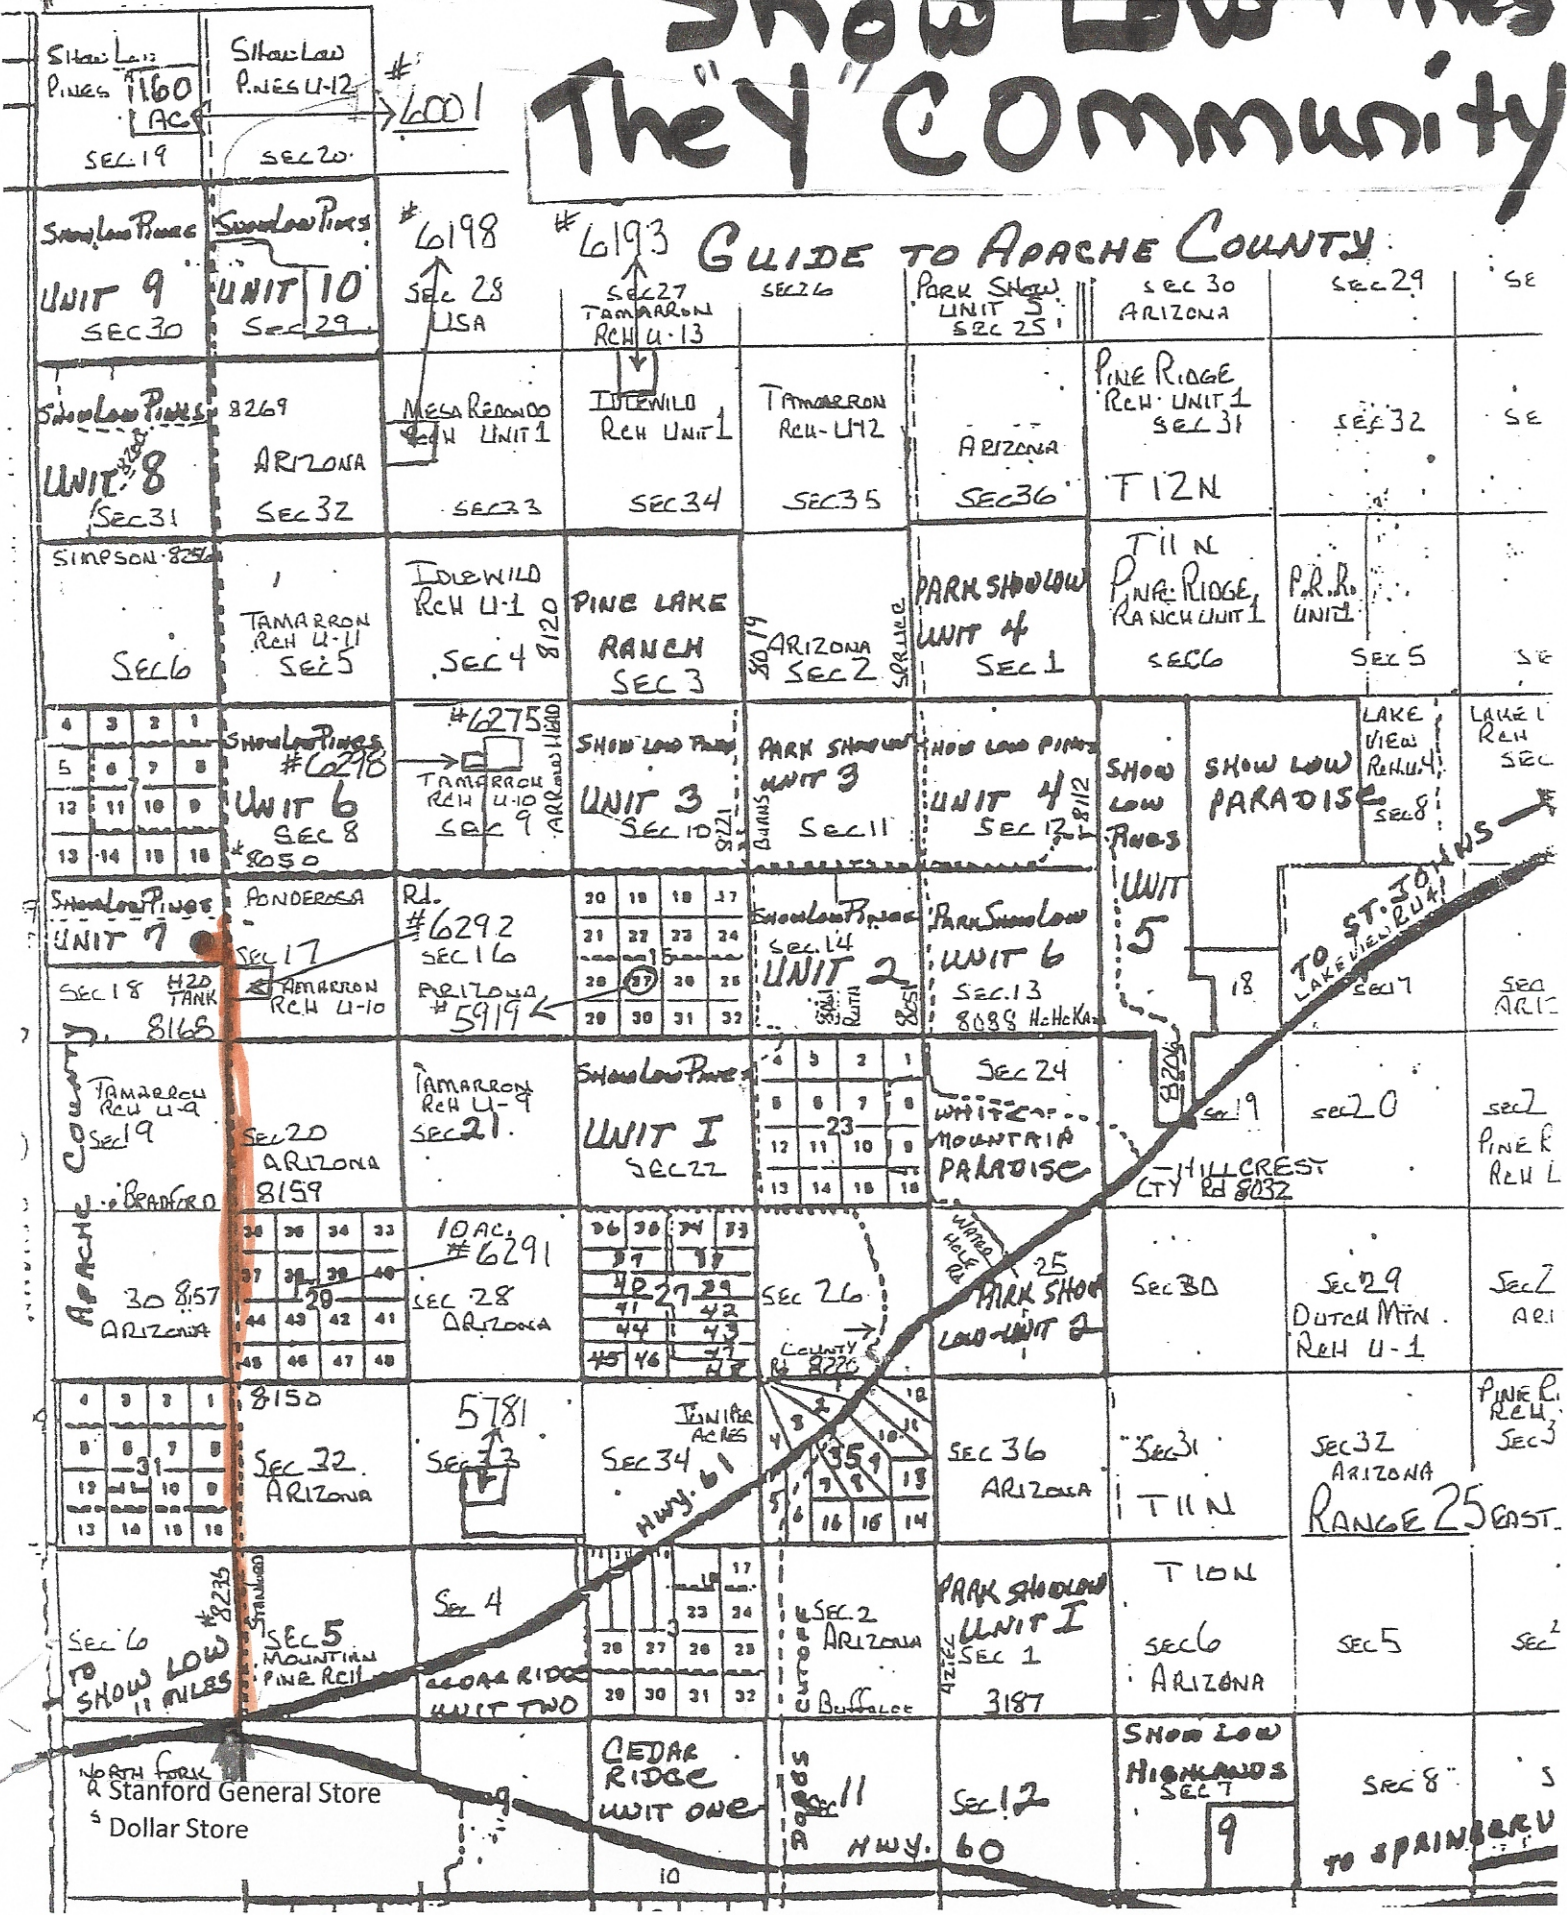 Show Low Pines
The "Y" Community
GUIDE TO APACHE COUNTY
Show Low
PINES
1160
AC
SEC 19
Show Low
PINES U-12
SEC 20
#
6001
Show Low Pines
UNIT 9
SEC 30
Show Low Pines
UNIT 10
SEC 29
#6198
SEC 28
USA
#6193
SEC 27
TAMARRON
RCH U-13
SEC 26
PARK SHOW
UNIT 5
SEC 25
SEC 30
ARIZONA
SEC 29
SE
Show Low Pines
8269
UNIT 8
SEC 31
8269
ARIZONA
SEC 32
MESA REDONDO
RCH UNIT 1
SEC 33
IDLEWILD
RCH UNIT 1
SEC 34
TAMARRON
RCH-U-12
SEC 35
ARIZONA
SEC 36
PINE RIDGE
RCH UNIT 1
SEC 31
T12N
SEC 32
SE
SIMPSON 8256
SEC 6
TAMARRON
RCH U-11
SEC 5
IDLEWILD
RCH U-1
SEC 4
8120
PINE LAKE
RANCH
SEC 3
8019
ARIZONA
SEC 2
SPRUCE
PARK SHOW LOW
UNIT 4
SEC 1
T11N
PINE RIDGE
RANCH UNIT 1
SEC 6
P.R.R.
UNIT 1
SEC 5
SE
4 3 2 1
5 6 7 8
12 11 10 9
13 14 15 16
Show Low Pines
#6298
UNIT 6
SEC 8
#8050
#6275
TAMARRON
RCH U-10
SEC 9
SHOW LOW PINES
UNIT 3
SEC 10
8221
PARK SHOW LOW
UNIT 3
BURNS
SEC 11
SHOW LOW PINES
UNIT 4
SEC 12
8112
SHOW
LOW
PINES
UNIT
5
SHOW LOW
PARADISE
LAKE
VIEW
RCH. U.4
SEC 8
LAKE
RCH
SEC
Show Low Pines
UNIT 7
SEC 18
H20
TANK
8168
PONDEROSA
Rd.
SEC 17
TAMARRON
RCH U-10
#6292
SEC 16
ARIZONA
#5919
20 19 18 17
21 22 23 24
15
28 27 26 25
29 30 31 32
Show Low Pines
SEC. 14
UNIT 2
RUTH
8051
Park Show Low
UNIT 6
SEC. 13
8088
18
TO ST. JOHNS
LAKEVIEW R U4
SEC 17
SEC
ARIZ
APACHE COUNTY
TAMARRON
RCH U-9
SEC 19
BRADFORD
SEC 20
ARIZONA
8159
TAMARRON
RCH U-9
SEC 21
Show Low Pines
UNIT I
SEC 22
4 3 2 1
5 6 7 8
23
12 11 10 9
13 14 15 16
SEC 24
WHITE
MOUNTAIN
PARADISE
8206
SEC 19
HILLCREST
CTY Rd 8032
SEC 20
SEC 2
PINE R
RCH
30 8157
ARIZONA
36 35 34 33
37 38 39 40
29
44 43 42 41
45 46 47 48
10 AC.
#6291
SEC 28
ARIZONA
36 35 34 33
37 38
40 27 39
41 42
44 43
45 46 47
48
SEC 26
COUNTY
Rd 8220
WATER
HOLE
Rd
25
PARK SHOW
LOW-UNIT 2
SEC 30
SEC 29
DUTCH MTN
RCH U-1
SEC 2
ARI
4 3 2 1
5 6 7 8
31
12 11 10 9
13 14 15 16
8150
SEC 32
ARIZONA
5781
SEC 33
JUNIPER
ACRES
SEC 34
HWY. 61
1 2 3 4 5 6 7 8 9 10 11 12 13
35
16 15 14
SEC 36
ARIZONA
SEC 31
T11N
SEC 32
ARIZONA
RANGE 25 EAST
PINE R.
RCH.
SEC 3
SEC 6
TO
SHOW LOW
11 MILES
#8235
STANFORD
SEC 5
MOUNTIAN
PINE RCH
SEC 4
CEDAR RIDGE
UNIT TWO
17
23 24
3
28 27 26 25
29 30 31 32
CUTOFF
SEC. 2
ARIZONA
Buffaloe
PARK SHOWLOW
UNIT I
AZTEC
SEC 1
3187
T10N
SEC 6
ARIZONA
SEC 5
SEC
NORTH FORK
Stanford General Store
Dollar Store
9
CEDAR
RIDGE
UNIT ONE
10
ADAMS
SEC 11
HWY. 60
SEC 12
SHOW LOW
HIGHLANDS
SEC 7
9
SEC 8
S
TO SPRINGERV